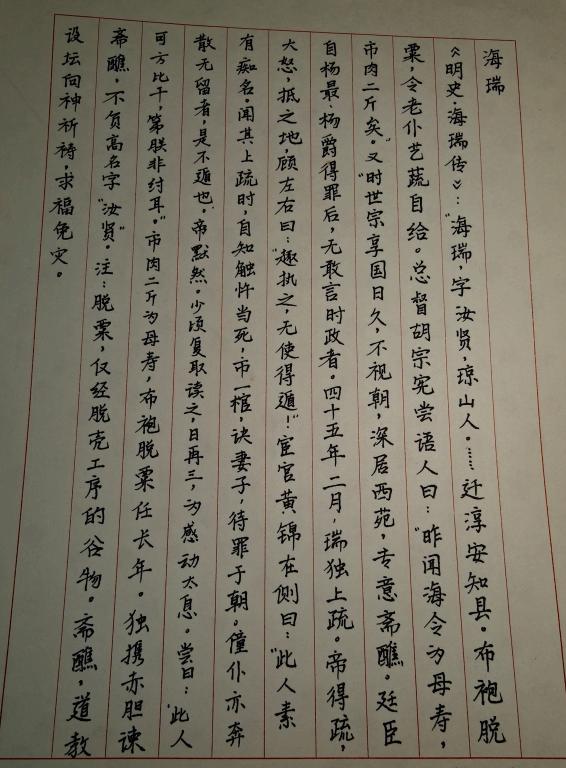 海瑞
《明史·海瑞传》：“海瑞，字汝贤，琼山人。……迁淳安知县。布袍脱
粟，令老仆艺蔬自给。总督胡宗宪尝语人曰：“昨闻海令为母寿，
市肉二斤矣。”又“时世宗享国日久，不视朝，深居西苑，专意斋醮。廷臣
自杨最、杨爵得罪后，无敢言时政者。四十五年二月，瑞独上疏。帝得疏，
大怒，抵之地，顾左右曰：“趣执之，无使得遁！”宦官黄锦在侧曰：“此人素
有痴名。闻其上疏时，自知触忤当死，市一棺，诀妻子，待罪于朝。僮仆亦奔
散无留者，是不遁也。”帝默然。少顷复取读之，日再三，为感动太息。尝曰：“此人
可方比干，第朕非纣耳。”市肉二斤为母寿，布袍脱粟任长年。独携赤胆谏
斋醮，不负高名字“汝贤”。注：脱粟，仅经脱壳工序的谷物。斋醮，道教
设坛向神祈祷，求福免灾。